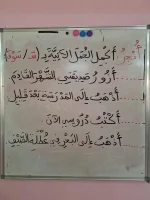 أُنجِزُ: أُكْمِلُ الجُمَلَ الآتِيَةَ بِـ (سَـ / سَوْفَ)
...... أَزُورُ صَدِيقَتِي الشَّهْرَ القَادِمَ
...... أَذْهَبُ إِلَى المَدْرَسَةِ بَعْدَ قَلِيلٍ
...... أَكْتُبُ دُرُوسِي الآنَ
...... أَذْهَبُ إِلَى البَحْرِ فِي عُطْلَةِ الصَّيْفِ